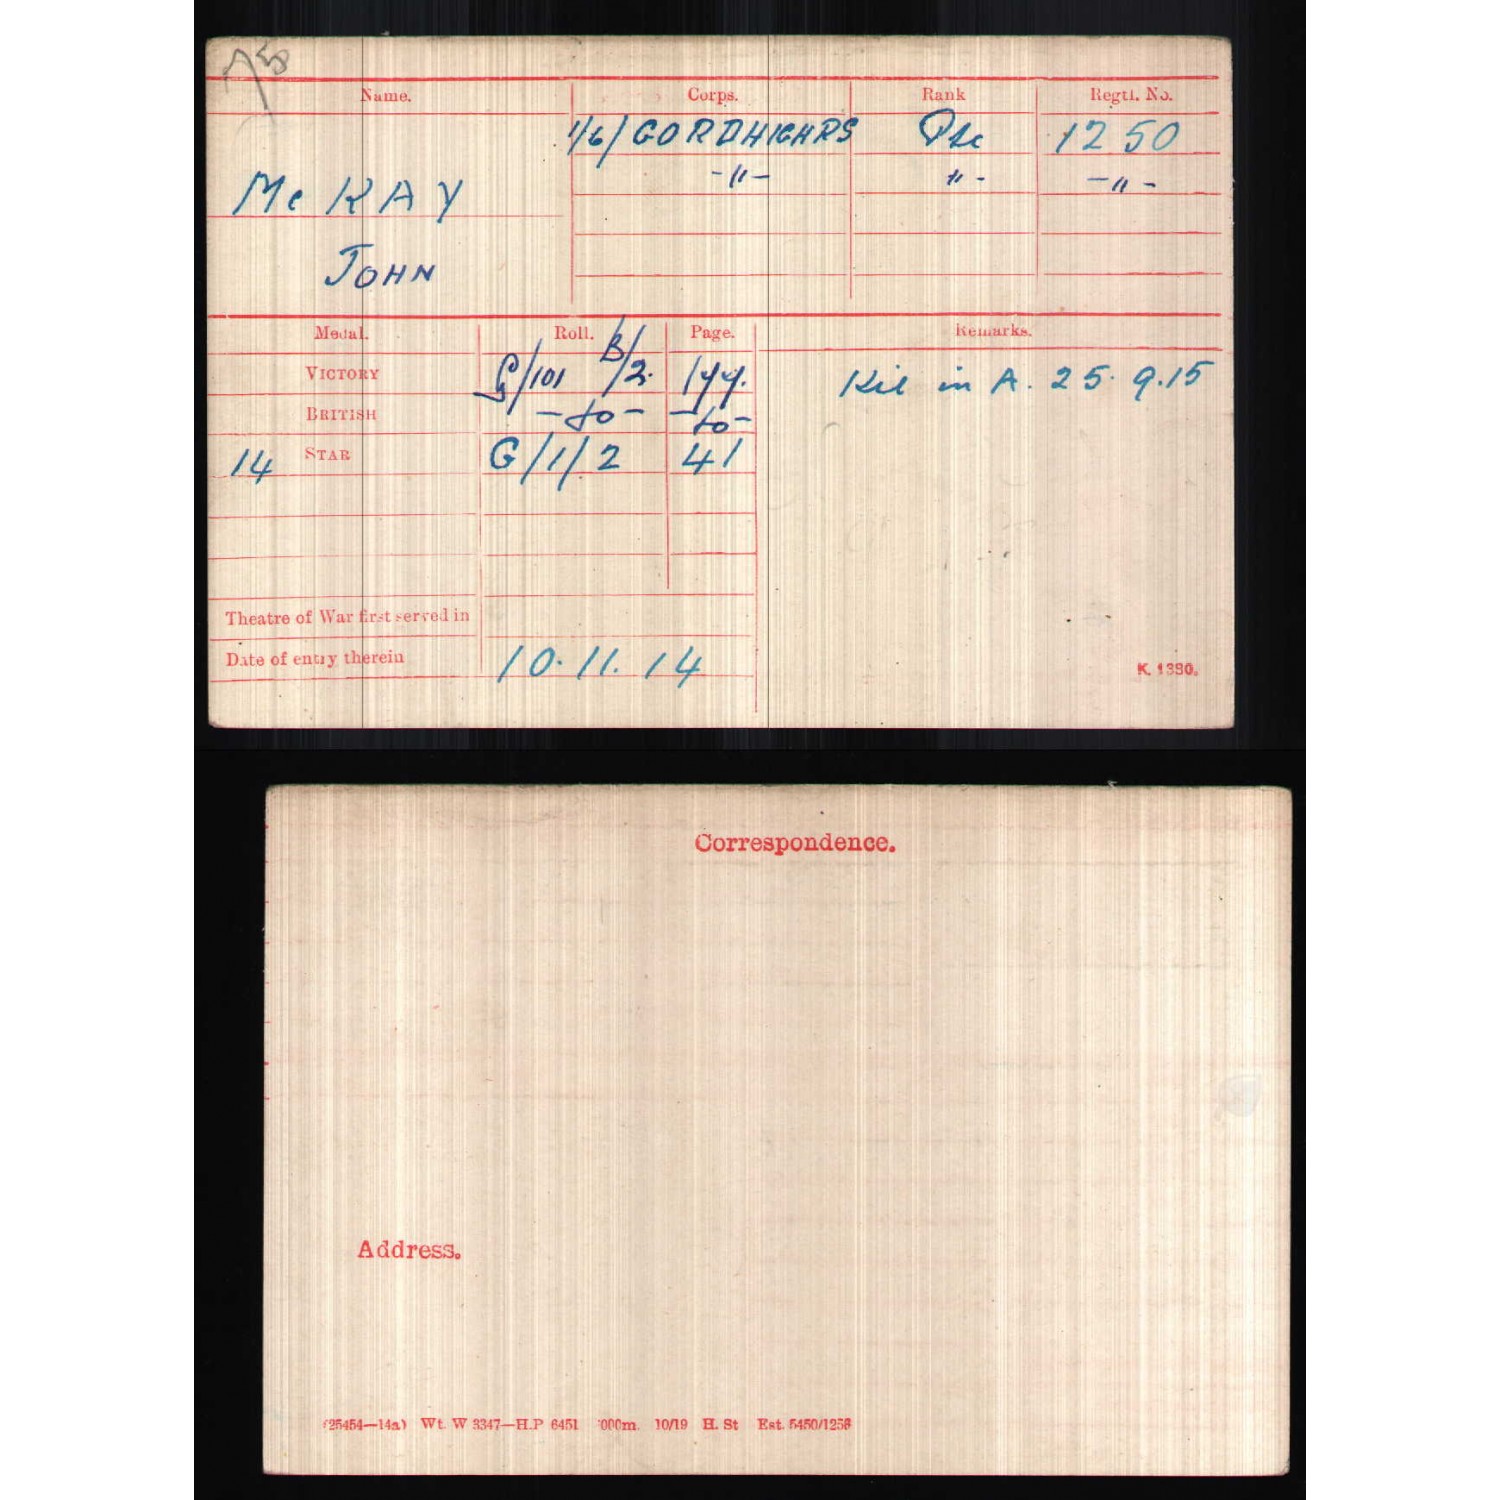 Name. Corps. Rank Regtl. No.
1/6/ GORDHIGHRS Pte 1250
McKAY -"- " - -"-
JOHN
Medal. Roll. Page. Remarks.
B/
VICTORY G/101 /2. 144. Kil in A. 25.9.15
BRITISH -do- -do-
14 STAR G/1/2 41
Theatre of War first served in
Date of entry therein 10.11.14
K. 1380.
Correspondence.
Address.
(25454—14a) Wt. W 3347—H.P 6451 000m. 10/19 H. St Est. 5450/1256